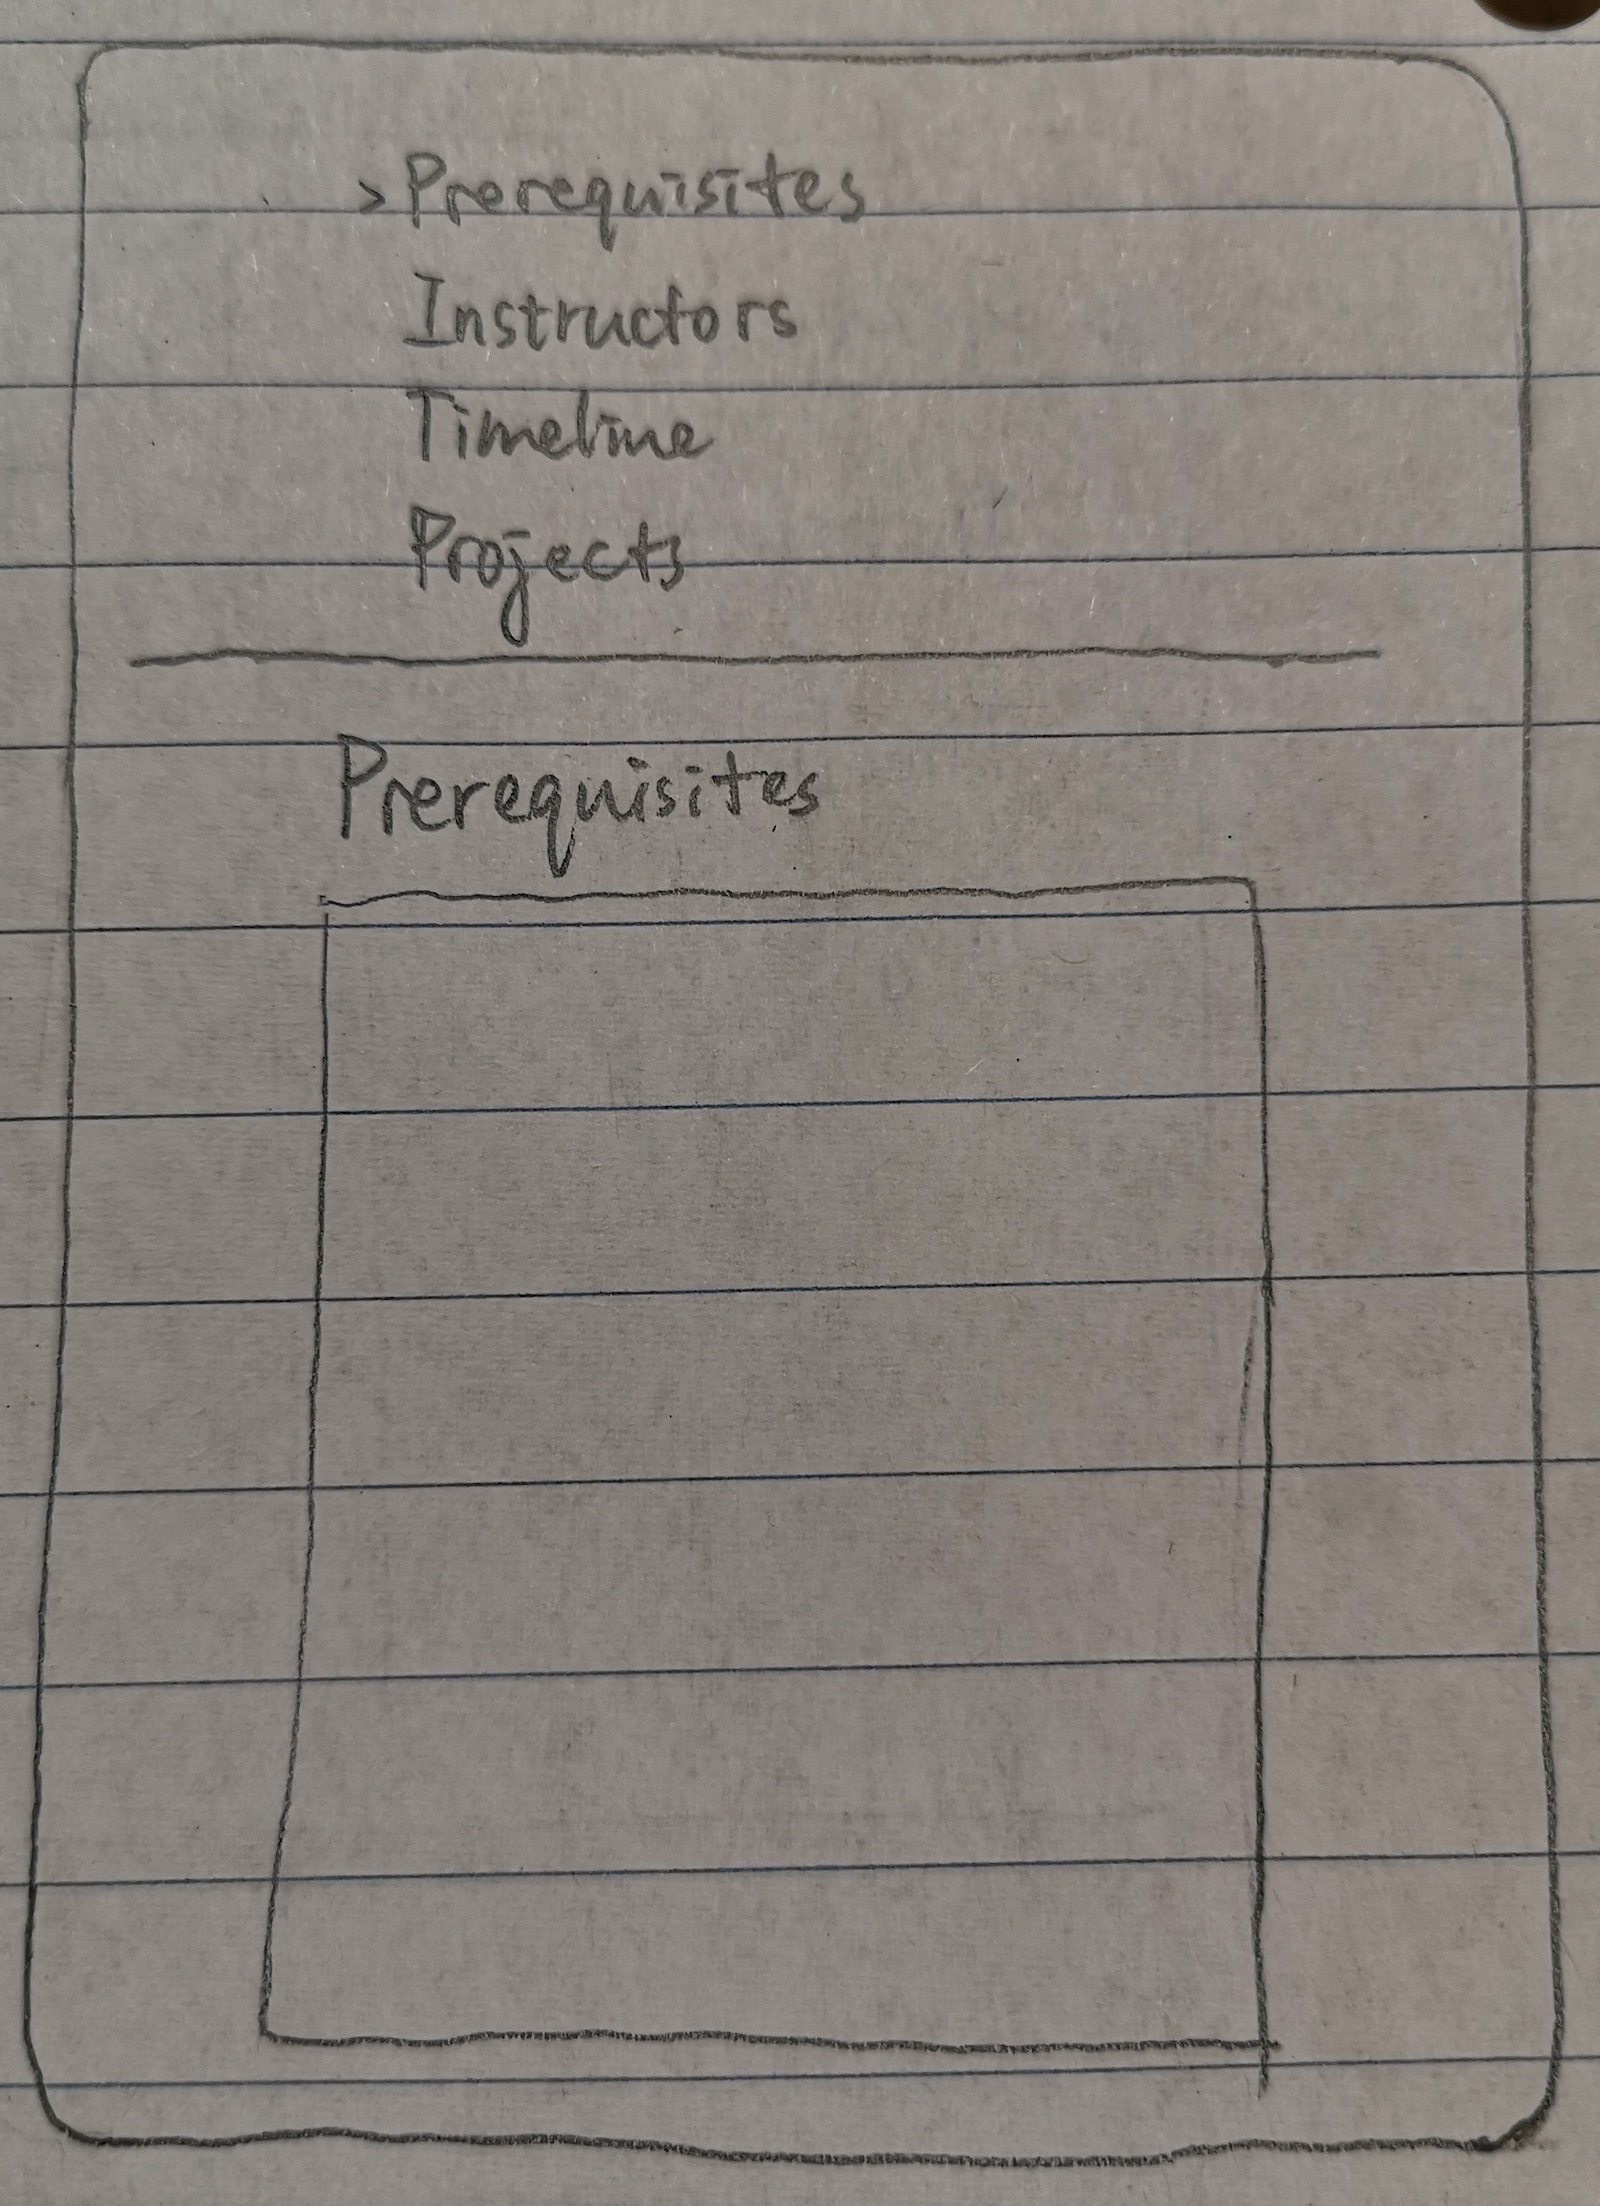 > Prerequisites
Instructors
Timeline
Projects
Prerequisites